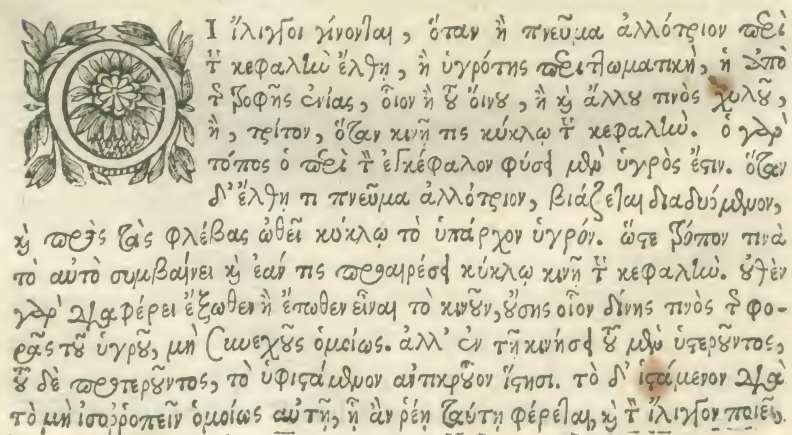 ΟΙ ἴλιγγοι γίνονται, ὅταν ἢ πνεῦμα ἀλλότριον περὶ
τ̀ κεφαλὴν ἔλθῃ, ἢ ὑγρότης περιττωματικὴ, ἢ ἀπὸ
τ̃ τροφῆς ἐνίας, οἷον ἢ τοῦ οἴνου, ἢ καὶ ἄλλου τινὸς χυλοῦ,
ἢ, τρίτον, ὅταν κινῇ τις κύκλῳ τ̀ κεφαλήν. ὁ γὰρ
τόπος ὁ περὶ τ̀ ἐγκέφαλον φύσει μὲν ὑγρὸς ἐστιν. ὅταν
δ' ἔλθῃ τι πνεῦμα ἀλλότριον, βιάζεται διαδυόμενον,
καὶ πρὸς τὰς φλέβας ὠθεῖ κύκλῳ τὸ ὑπάρχον ὑγρόν. ὥστε τρόπον τινὰ
τὸ αὐτὸ συμβαίνει καὶ ἐάν τις προαιρέσει κύκλῳ κινῇ τ̀ κεφαλήν. οὐθὲν
γὰρ διαφέρει ἔξωθεν ἢ ἔσωθεν εἶναι τὸ κινοῦν, οὔσης οἷον δίνης τινὸς τ̃ φο-
ρᾶς τοῦ ὑγροῦ, μὴ συνεχοῦς ὁμοίως. ἀλλ' ἐν τῇ κινήσει τοῦ μὲν ὑστεροῦντος,
τοῦ δὲ προτεροῦντος, τὸ ὑφιστάμενον ἀντικροῦον ἵστησι. τὸ δ' ἱστάμενον διὰ
τὸ μὴ ἰσορροπεῖν ὁμοίως αὐτῇ, ᾗ ἂν ῥέῃ ταύτῃ φέρεται, καὶ τ̀ ἴλιγγον ποιεῖ.